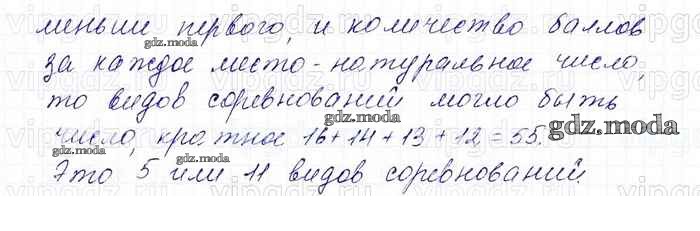 меньши первого, и количество баллов
за каждое место - натуральное число,
то видов соревнований могло быть
число, кратное 16+14+13+12=55.
Это 5 или 11 видов соревнований.
gdz.moda
gdz.moda
gdz.moda
gdz.moda
gdz.moda